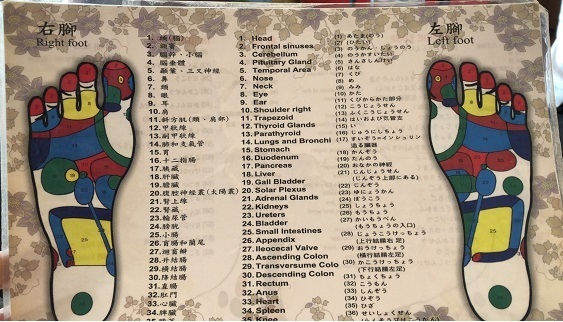 右腳
Right foot
左腳
Left foot
1. 頭(腦)
2. 額竇
3. 腦幹、小腦
4. 腦垂體
5. 顳葉、三叉神經
6. 鼻
7. 頸
8. 眼
9. 耳
10. 肩
11. 斜方肌(頸、肩部)
12. 甲狀線
13. 副甲狀線
14. 肺和支氣管
15. 胃
16. 十二指腸
17. 胰臟
18. 肝臟
19. 膽臟
20. 腹腔神經叢(太陽叢)
21. 腎上線
22. 腎臟
23. 輸尿管
24. 膀胱
25. 小腸
26. 盲腸和闌尾
27. 迴盲瓣
28. 升結腸
29. 橫結腸
30. 降結腸
31. 直腸
32. 肛門
33. 心臟
34. 脾臟
1. Head
2. Frontal sinuses
3. Cerebellum
4. Pituitary Gland
5. Temporal Area
6. Nose
7. Neck
8. Eye
9. Ear
10. Shoulder right
11. Trapezoid
12. Thyroid Glands
13. Parathyroid
14. Lungs and Bronchi
15. Stomach
16. Duodenum
17. Pancreas
18. Liver
19. Gall Bladder
20. Solar Plexus
21. Adrenal Glands
22. Kidneys
23. Ureters
24. Bladder
25. Small Intestines
26. Appendix
27. Ileocecal Valve
28. Ascending Colon
29. Transversume Colo
30. Descending Colon
31. Rectum
32. Anus
33. Heart
34. Spleen
35. Knee
(1) あたま(のう)
(2) (ひたい)
(3) のうかん・じょうのう
(4) のうかすいたい
(5) さんさしんけい
(6) はな
(7) くび
(8) め
(9) みみ
(10) かた
(11) くびからかた部分
(12) こうじょうせん
(13) ふくこうじょうせん
(14) はいおよび気管支
(15) い
(16) じゅうにしちょう
(17) すいぞう=インシュリン
造る臓器
(18) かんぞう
(19) たんのう
(20) おなかの神経
(21) じんじょうせん
(じんぞう上部にある)
(22) じんぞう
(23) ゆにょうかん
(24) ぼうこう
(25) しょうちょう
(26) もうちょう
(27) かいもうべん
(もうちょうの入口)
(28) じょうこうけっちょう
(上行結腸右 足)
(29) おうけっちょう
(横行結腸右 足)
(30) かこうけっちょう
(下行結腸 左足)
(31) ちょくちょう
(32) こうもん
(33) しんぞう
(34) ひぞう
(35) ひざ
(36) せいしょくせん